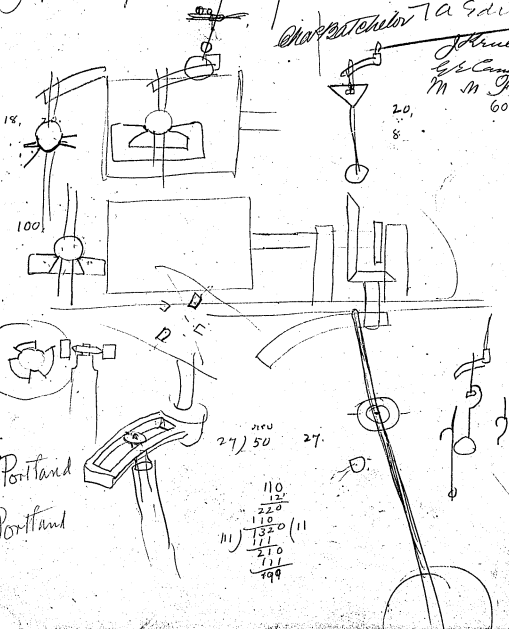 Chas Batchelor T A Edi
J Krue
M M
18,
20,
8
60
100
27) 50 27.
Portland
Portland
110
12
220
110
111) 1320 (11
111
210
111
199